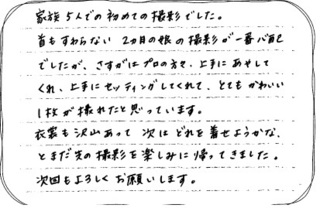 家族5人での初めての撮影でした。
首もすわらない 2カ月の娘の撮影が一番心配
でしたが、さすがはプロの方々、上手にあやして
くれ、上手にセッティングしてくれて、とてもかわいい
1枚が撮れたと思っています。
衣裳も沢山あって 次は どれを着せようかな、
とまだ先の撮影を楽しみに帰ってきました。
次回もよろしくお願いします。